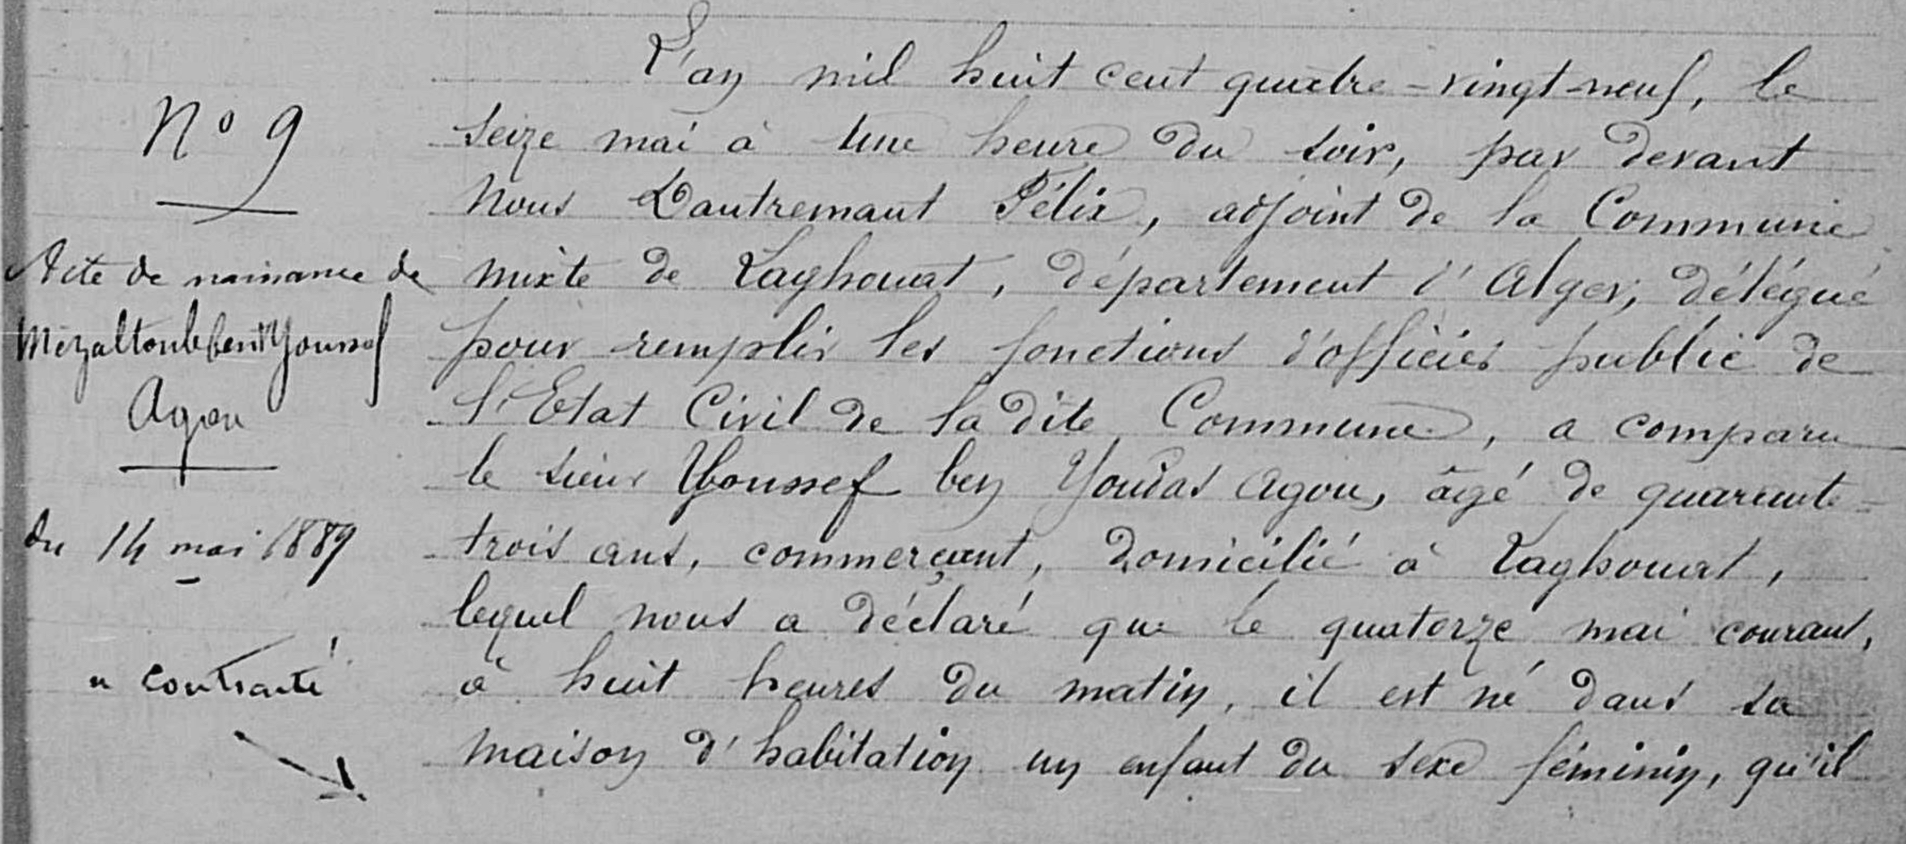 N° 9
Acte de naissance de
Mezaltoubebent Youssef
Agou
du 14 mai 1889
a contracté
L'an mil huit cent quatre-vingt-neuf, le
seize mai à une heure du soir, par devant
Nous Dautremaut Félix, adjoint de la Commune
mixte de Laghouat, département d'Alger, délégué
pour remplir les fonctions d'officier public de
l'Etat Civil de la dite Commune, a comparu
le sieur Youssef ben Youdas Agou, âgé de quarante-
trois ans, commerçant, domicilié à Laghouat,
lequel nous a déclaré que le quatorze mai courant,
à huit heures du matin, il est né dans sa
maison d'habitation un enfant du sexe féminin, qu'il